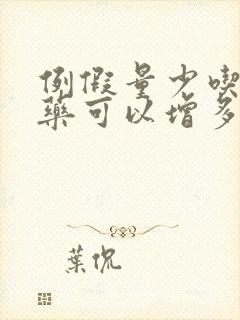 例假量少喫
藥可以增多
葉侃